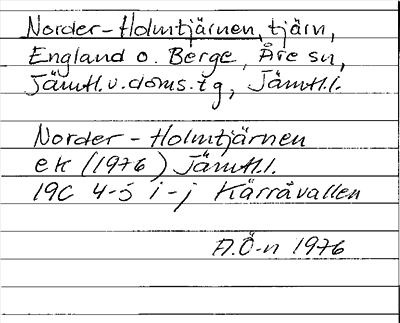 Norder-Holmtjärnen, tjärn,
England o. Berge, Åre sn,
Jämtl.v.doms.tg, Jämtl.l.
Norder-Holmtjärnen
ek (1976) Jämtl.l.
19C 4-5 i-j Kärråvallen
A.Ö-n 1976